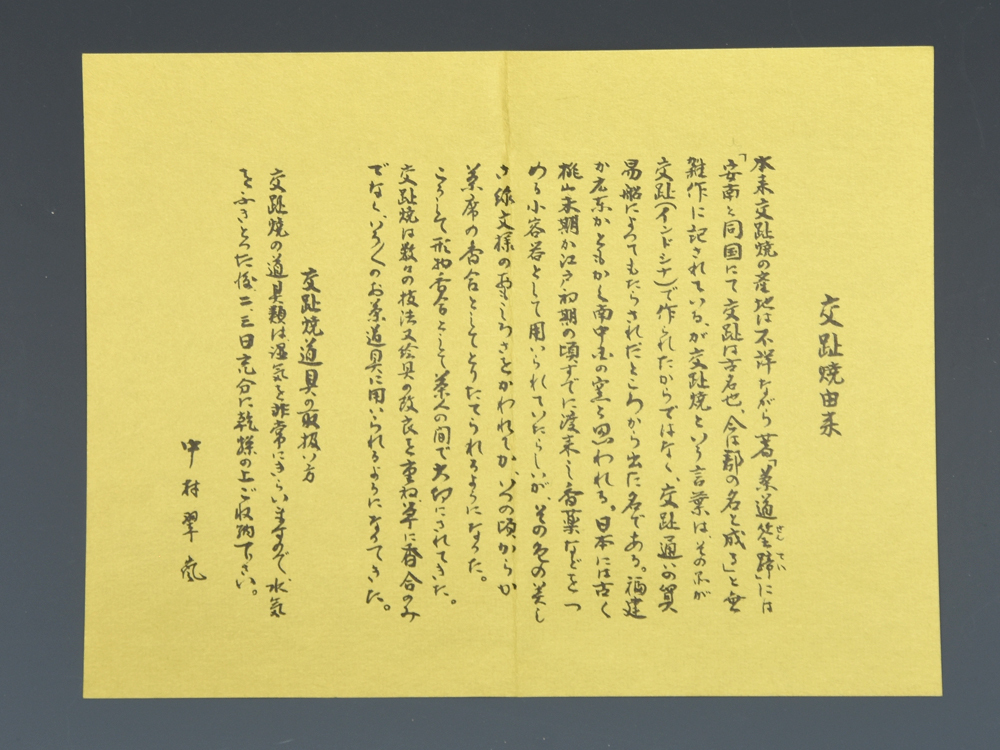 交趾焼由来
本来交趾焼の産地は不詳ながら著「茶道筌蹄」には
せんてい
「安南と同国にて交趾は古名也、今は郡の名と成る」と
雑作に記されている、が交趾焼という言葉は、その品が
交趾(インドシナ)で作られたからではなく、交趾通いの貿
易船によってもたらされたところから出た名である。福建
か広东かともかく南中国の窯と思われる。日本には古く
桃山末期か江戸初期の頃すでに渡来し香薬などをつ
める小容器として用いられていたらしいが、その色の美し
さ線文様のおもしろさとかわれてか、いつの頃からか
茶席の香合としてとりたてられるようになった。
こうして形物香合として茶人の間で大切にされてきた。
交趾焼は数々の技法又絵具の改良を重ね、単に香合のみ
でなく、いろ〱のお茶道具に用いられるようになってきた。
交趾焼道具の取扱い方
交趾焼の道具類は湿気を非常にきらいますので、水気
をふきとった後二、三日充分に乾燥の上ご収納下さい。
中村翠嵐